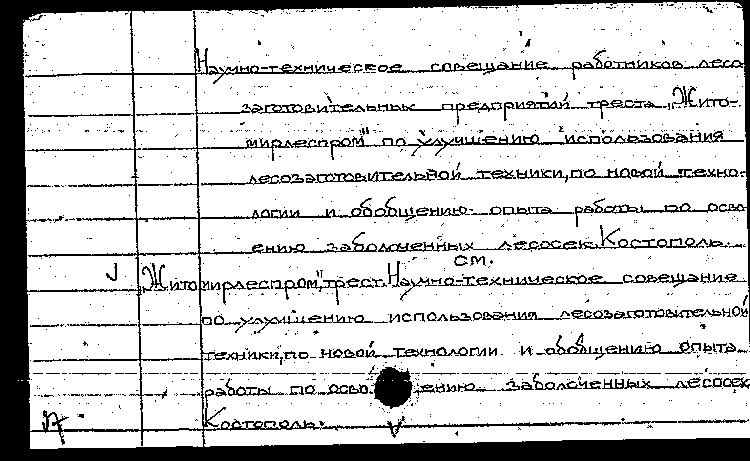 Научно-техническое совещание работников лесо
заготовительных предприятий треста „Жито-
мирлеспром" по улучшению использования
лесозаготовительной техники, по новой техно-
логии и обобщению опыта работы по осво
ению заболоченных лесосек. Костополь.
см.
„Житомирлеспром", трест. Научно-техническое совещание
по улучшению использования лесозаготовительной
техники, по новой технологии и обобщению опыта
работы по осво ению заболоченных лесосек
Костополь.